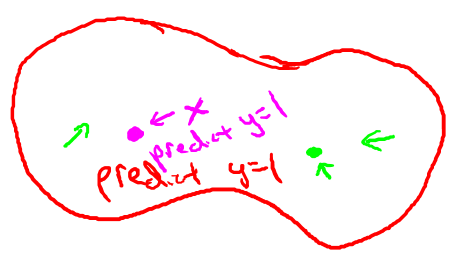 x
predict y=1
predict y=1